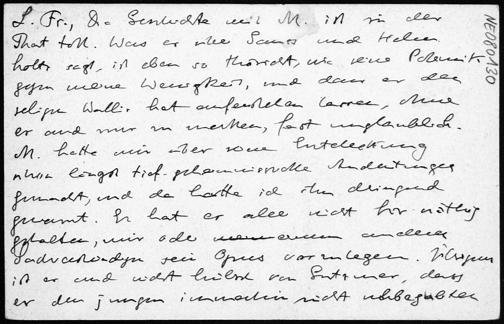 L. Fr., Die Geschichte mit M. ist in der
That toll. Was er über und Helm
holtz sagt, ist eben so thöricht, wie seine Polemik
gegen meine Wenigkeit, und dass er den
seligen Wallis hat auferstehen lassen, ohne
es auch nur zu merken, fast unglaublich.
M. hatte mir über seine Entdeckung
schon längst tief geheimnissvolle Andeutungen
gemacht, und da hatte ich ihn dringend
gewarnt. Er hat es aber nicht für nöthig
gehalten, mir oder anderen
Sachverständigen sein Opus vorzulegen. Übrigens
ist es auch nicht hübsch von , dass
er den jungen immerhin nicht unbegabten
NE080130